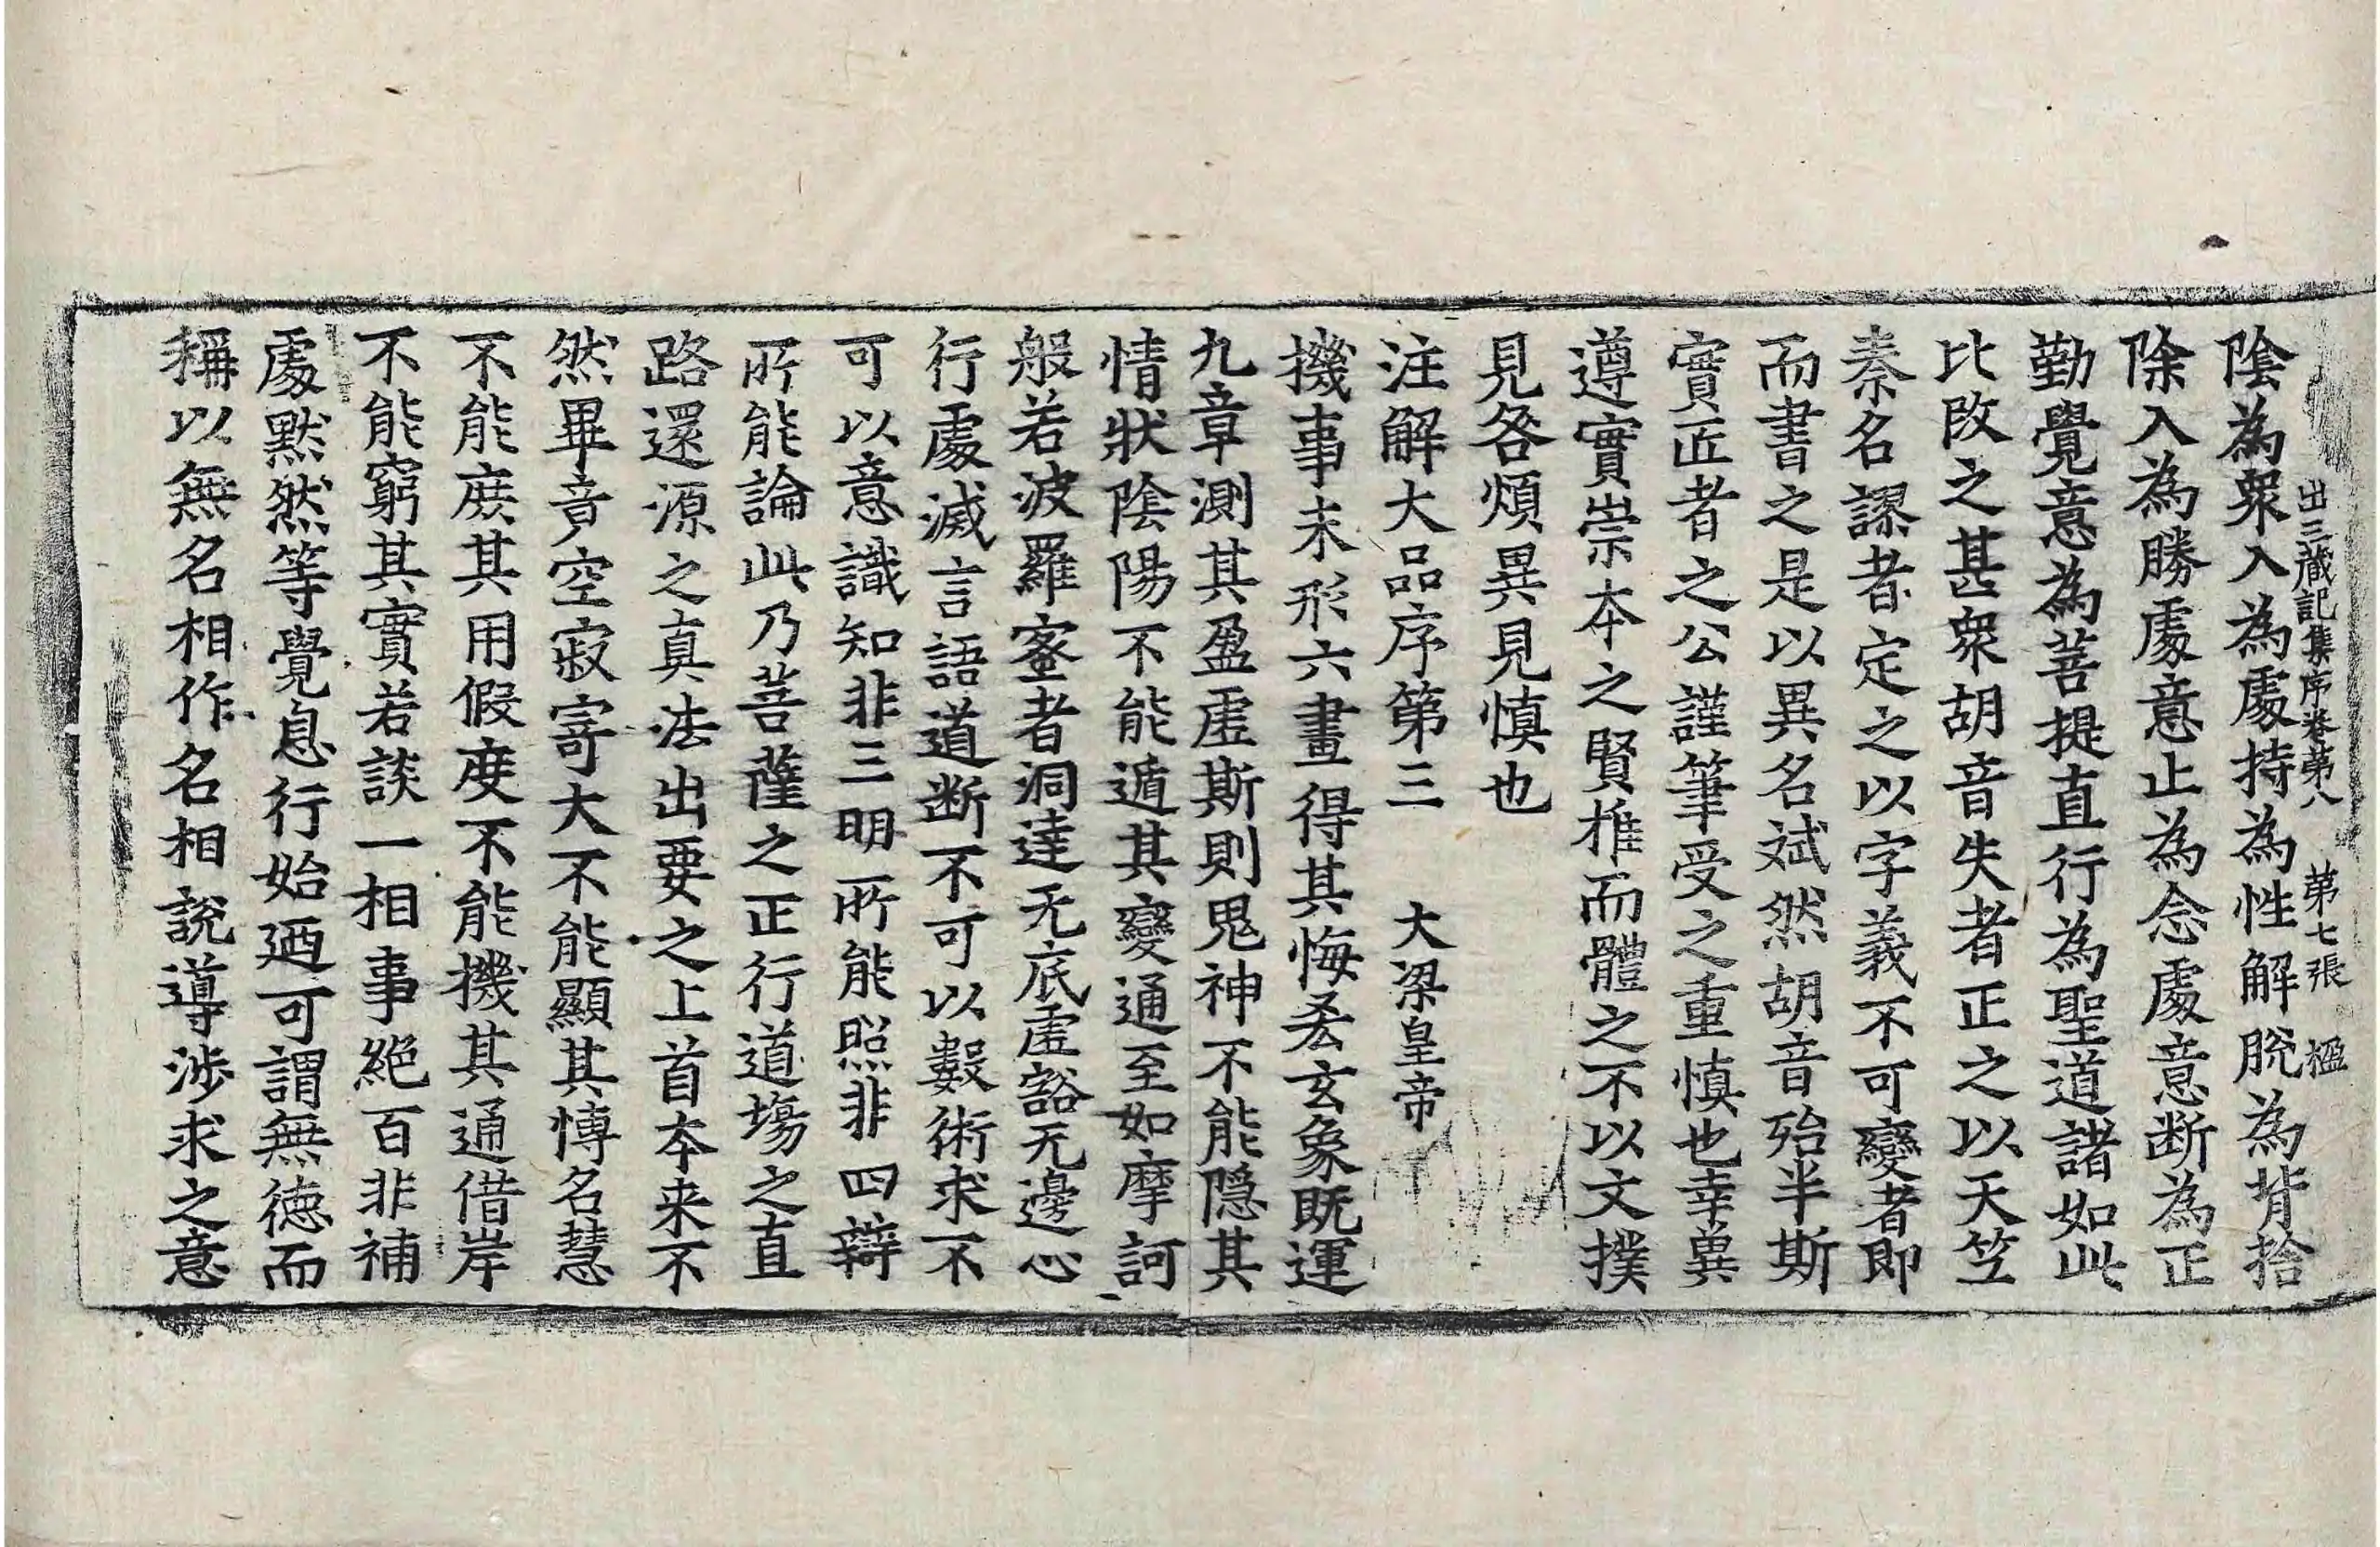 出三藏記集序卷第八　第七張　楹
陰為衆入為處持為性解脫為背捨
除入為勝處意止為念處意断為正
勤覺意為菩提直行為聖道諸如此
比改之甚衆胡音失者正之以天笁
秦名謬者定之以字義不可變者即
而書之是以異名斌然胡音殆半斯
實匠者之公謹筆受之重慎也幸兾
遵實崇本之賢推而體之不以文撲
見咎煩異見慎也
注解大品序第三　大梁皇帝
機事未形六畫得其悔吝玄象既運
九章測其盈虛斯則鬼神不能隱其
情狀陰陽不能遁其變通至如摩訶
般若波羅蜜者洞達无底虛豁无邊心
行處滅言語道断不可以數術求不
可以意識知非三明所能照非四辯
所能論此乃菩薩之正行道塲之直
路還源之真法出要之上首本来不
然畢竟空寂寄大不能顯其博名慧
不能庻其用假度不能機其通借岸
不能窮其實若談一相事絕百非補
處黙然等覺息行始廼可謂無德而
稱以無名相作名相說導涉求之意